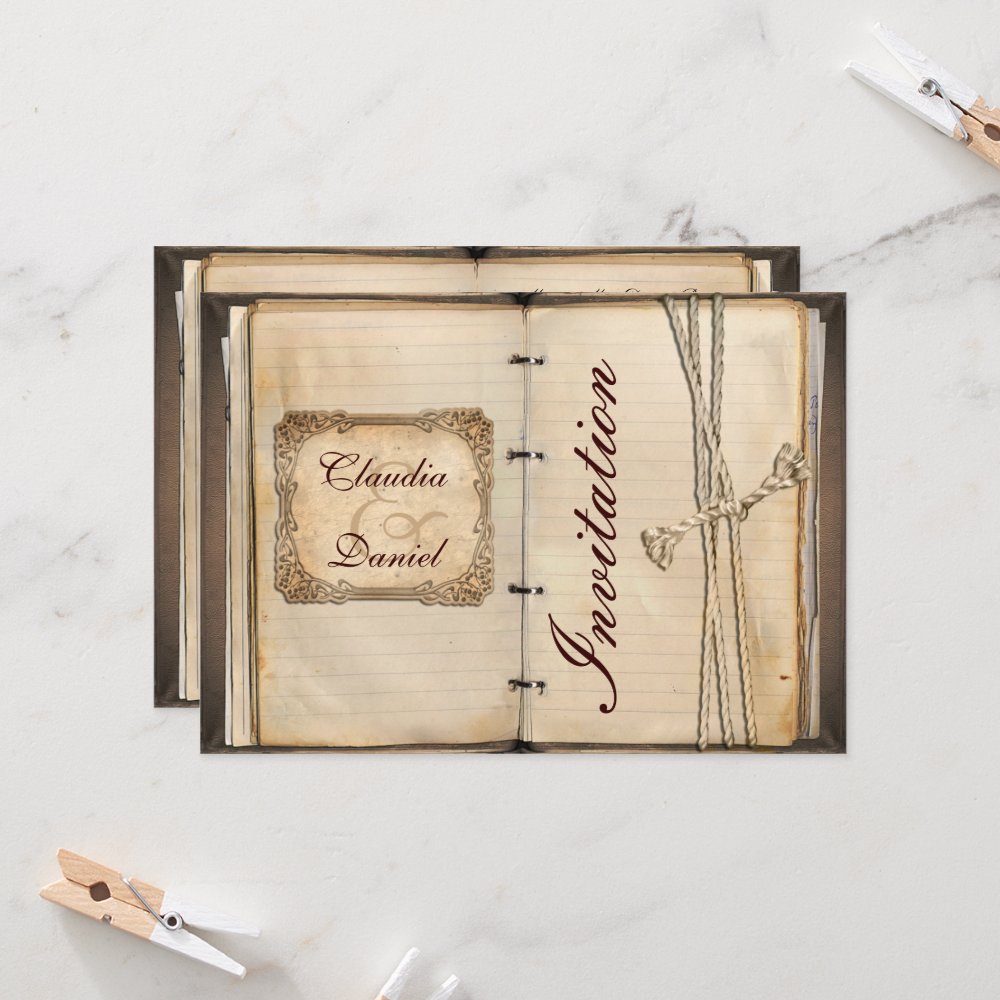 Claudia
&
Daniel
Invitation